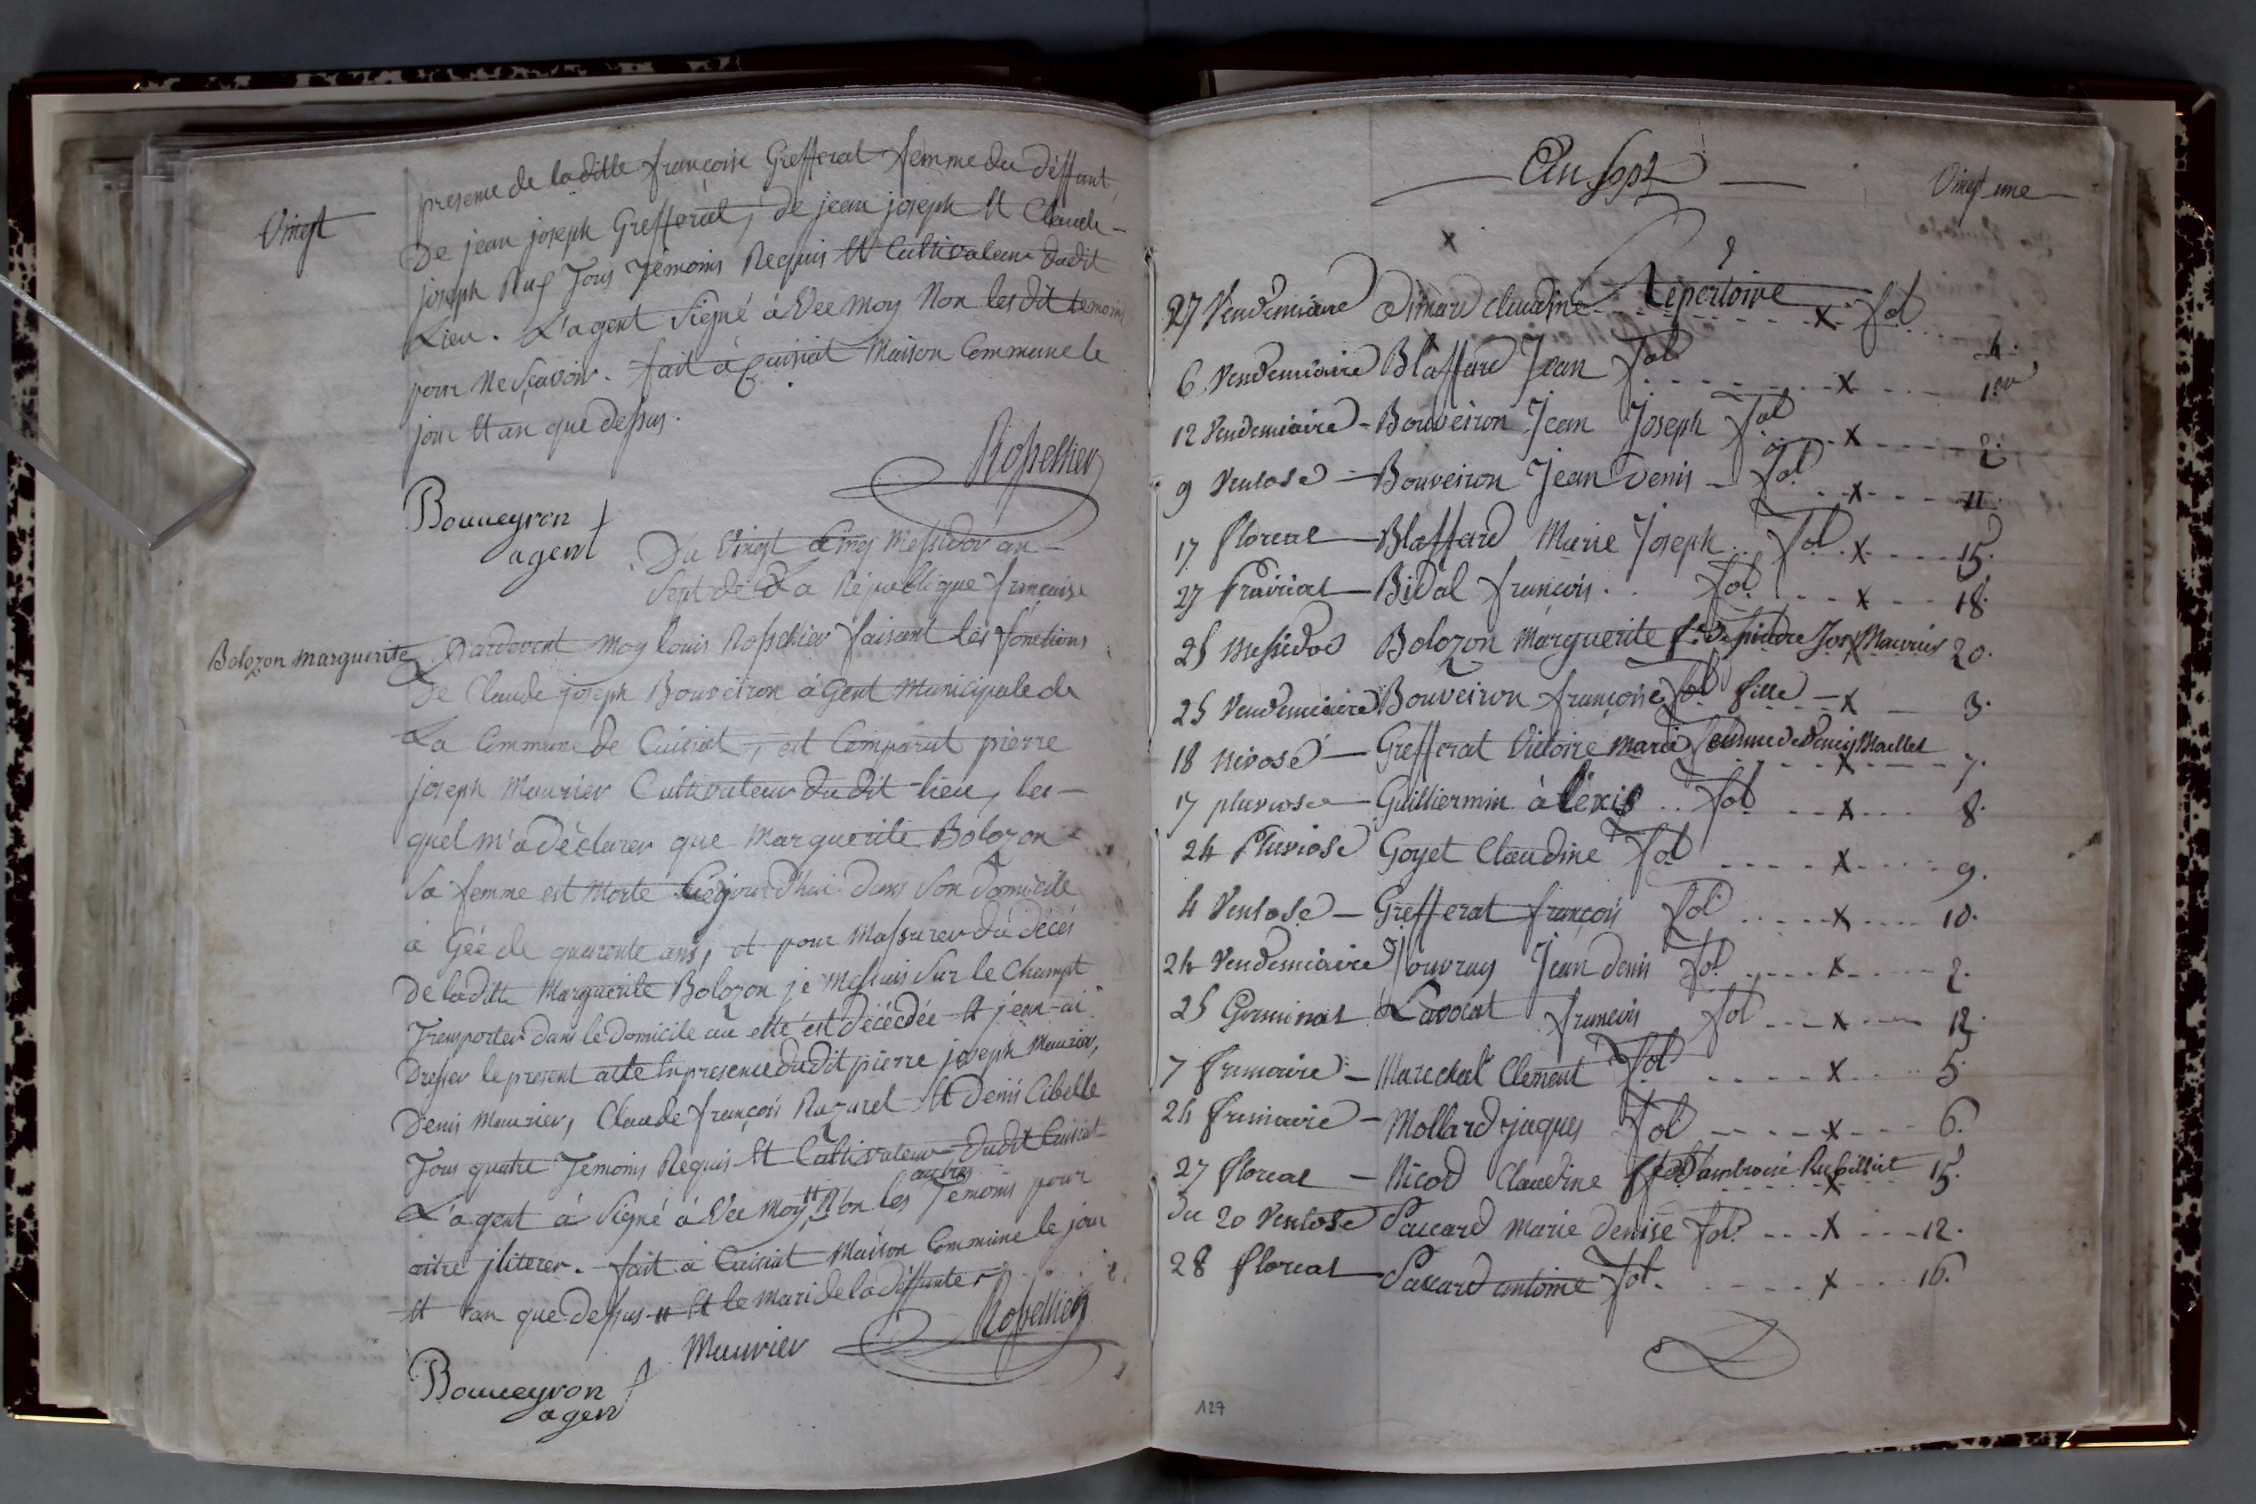 Vingt
presence de laditte françoise Grefferat femme du deffunt,
De jean joseph Grefferat, de jean joseph Et Claude-
joseph Puf Tous Témoins Requis Et Cultivateur dudit
Lieu. L'agent Signé à Vec moy Non lesdit temoins
pour Ne Sçavoir. fait à Cuisiat Maison Commune le
jour Et an que dessus.
Rossellier
Bouveyron
agent
Du Vingt Cinq Messidor an
Sept de La Republique française
Bolozon Marguerite
Pardevent Moy louis Rossellier faisant les fonctions
De Claude joseph Bouveiron àGent Municipale de
La Commune de Cuisiat, est Comparut pierre
joseph Maurier Cultivateur du dit lieu, les-
quel m'a déclarer que Marguerite Bolozon
Sa femme est Morte Cejourd'hui dans Son domicile
à Gée de quaronte ans, et pour Massurer du décés
De laditte Marguerite Bolozon je Messuis Sur le Champt
Tremporter dans le Domicile au elle est décécdée Et jean ai
Dresser le present acte En presence dudit pierre joseph Maurier,
Denis Maurier, Claude françois Razurel Et Denis Cibelle
Tous quatre Temoins Requis Et Cultivateur dudit Cuisiat
L'agent à Signé à Vec Moy # Non les autres Temoins pour
aitre jliterer. fait à Cuisiat Maison Commune le jour
Et l'an que dessus # Et le mari de la deffunte
Rossellier
Maurier
Bouveyron
agent
An Sept
Vingt une
Répertoire
27 Vendemiaire Adinard Claudine x fol 4.
6 Vendemiaire Blaffard Jean fol x 1er
12 Vendemiaire - Bouveiron Jean Joseph fol x 2.
9 Ventose - Bouveiron Jean Denis - fol x 11.
17 floreal - Blaffard Marie Joseph fol x 15.
27 Prairial - Bidal françois fol x 18.
25 Messidor Bolozon Marguerite fe de pierre Jos Maurier x 20.
25 Vendemiaire Bouveiron françoise fol fille - x 3.
18 Nivose - Grefferat Victoire Marie femme de Denis Maillet x 7.
17 pluviose - Guilliermin àlexis fol x 8.
24 Pluviose Goyet Claudine fol x 9.
4 Ventose - Grefferat françois fol x 10.
24 Vendemiaire Jouvray Jean Denis fol x 2.
25 Germinal Lavocat françois fol x 12.
7 frimaire - Marechal Clement fol x 5.
24 frimaire - Mollard jaques fol x 6.
27 floreal - Nicod Claudine fe d'ambroise Rubilliat x 15.
Du 20 Ventose Paccard Marie Denise fol x 12.
28 floreal - Paccard antoine fol x 16.
127